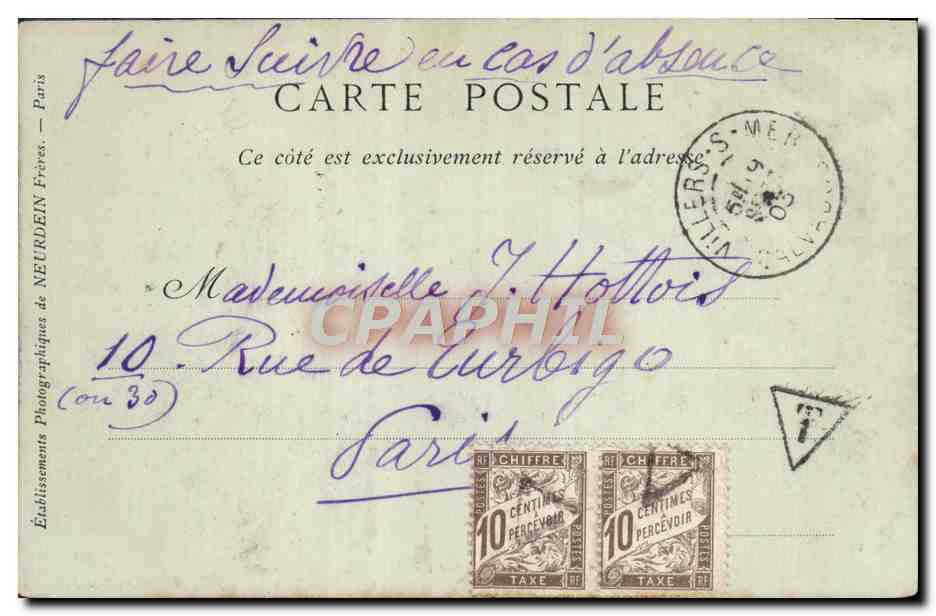 faire suivre en cas d'absence
CARTE POSTALE
Ce côté est exclusivement réservé à l'adresse
VILLERS-S-MER CALVADOS
03
Mademoiselle J. Hottois
10 Rue de Turbigo
(ou 30)
Paris
T
RF CHIFFRE
POSTES
10 CENTIMES À PERCEVOIR
POSTES
TAXE RF
RF CHIFFRE
POSTES
10 CENTIMES À PERCEVOIR
POSTES
TAXE RF
Établissements Photographiques de NEURDEIN Frères. — Paris
CPAPHIL